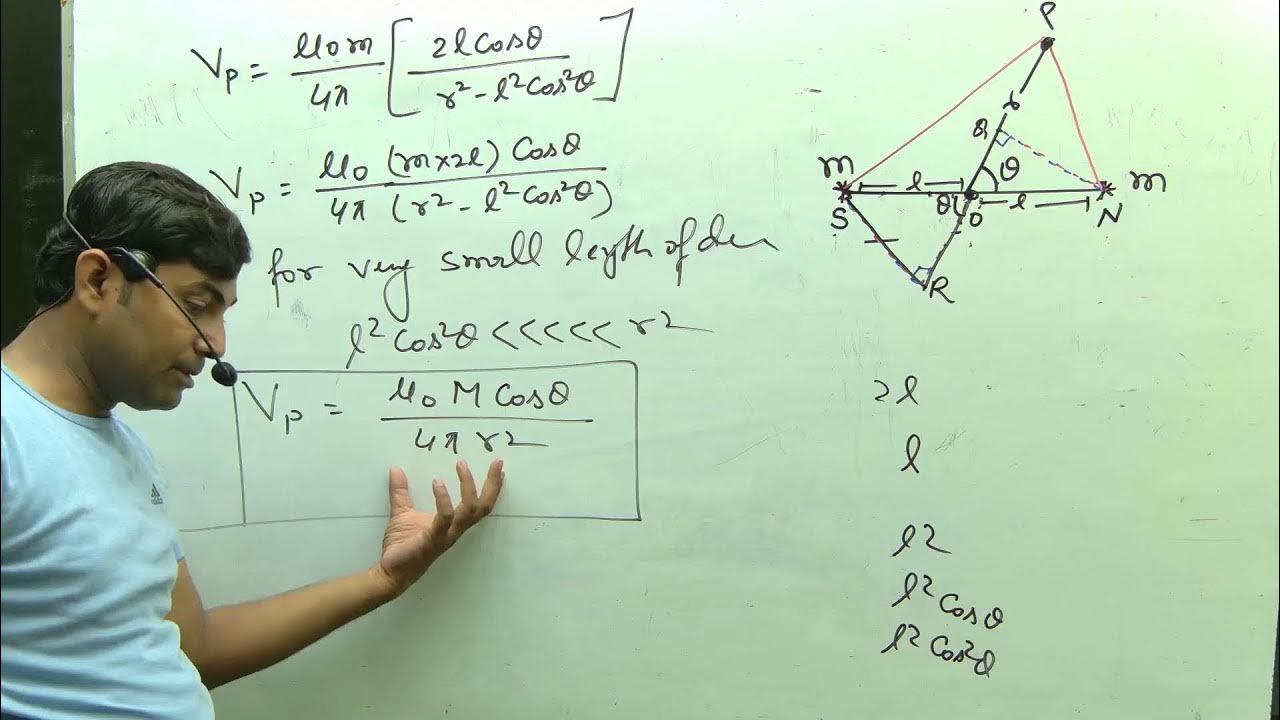 Vp = μ0 m / 4π [ 2l Cosθ / r² - l² Cos²θ ]
Vp = μ0 (m×2l) Cosθ / 4π (r² - l² Cos²θ)
for very small length of
l² Cos²θ <<<<< r²
Vp = μ0 M Cosθ / 4π r²
P
r
Q
θ
m l m
S θ O l N
R
2l
l
l²
l² Cosθ
l² Cos²θ